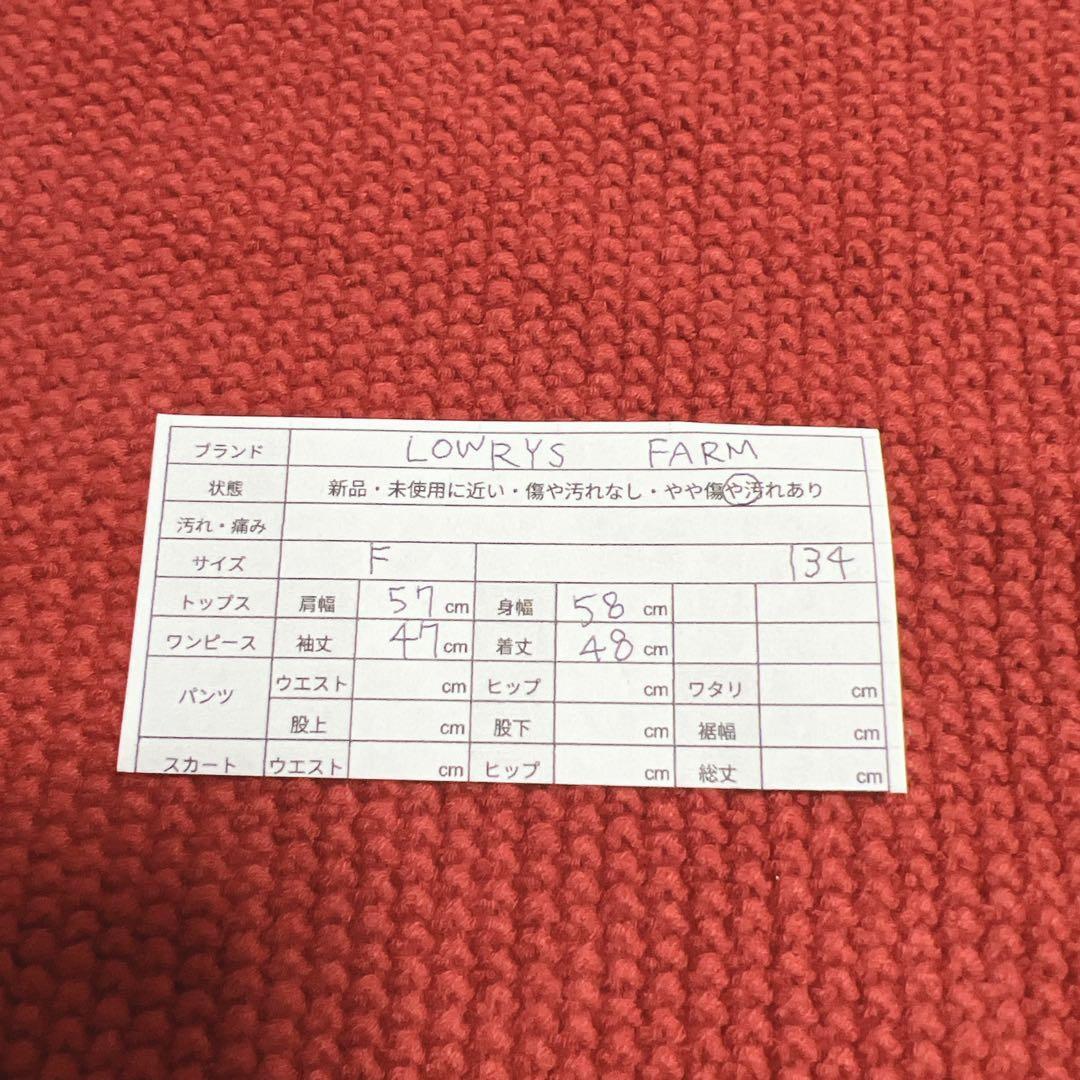 ブランド LOWRYS FARM
状態 新品・未使用に近い・傷や汚れなし・やや傷や汚れあり
汚れ・痛み
サイズ F 134
トップス 肩幅 57 cm 身幅 58 cm
ワンピース 袖丈 47 cm 着丈 48 cm
パンツ ウエスト cm ヒップ cm ワタリ cm
股上 cm 股下 cm 裾幅 cm
スカート ウエスト cm ヒップ cm 総丈 cm